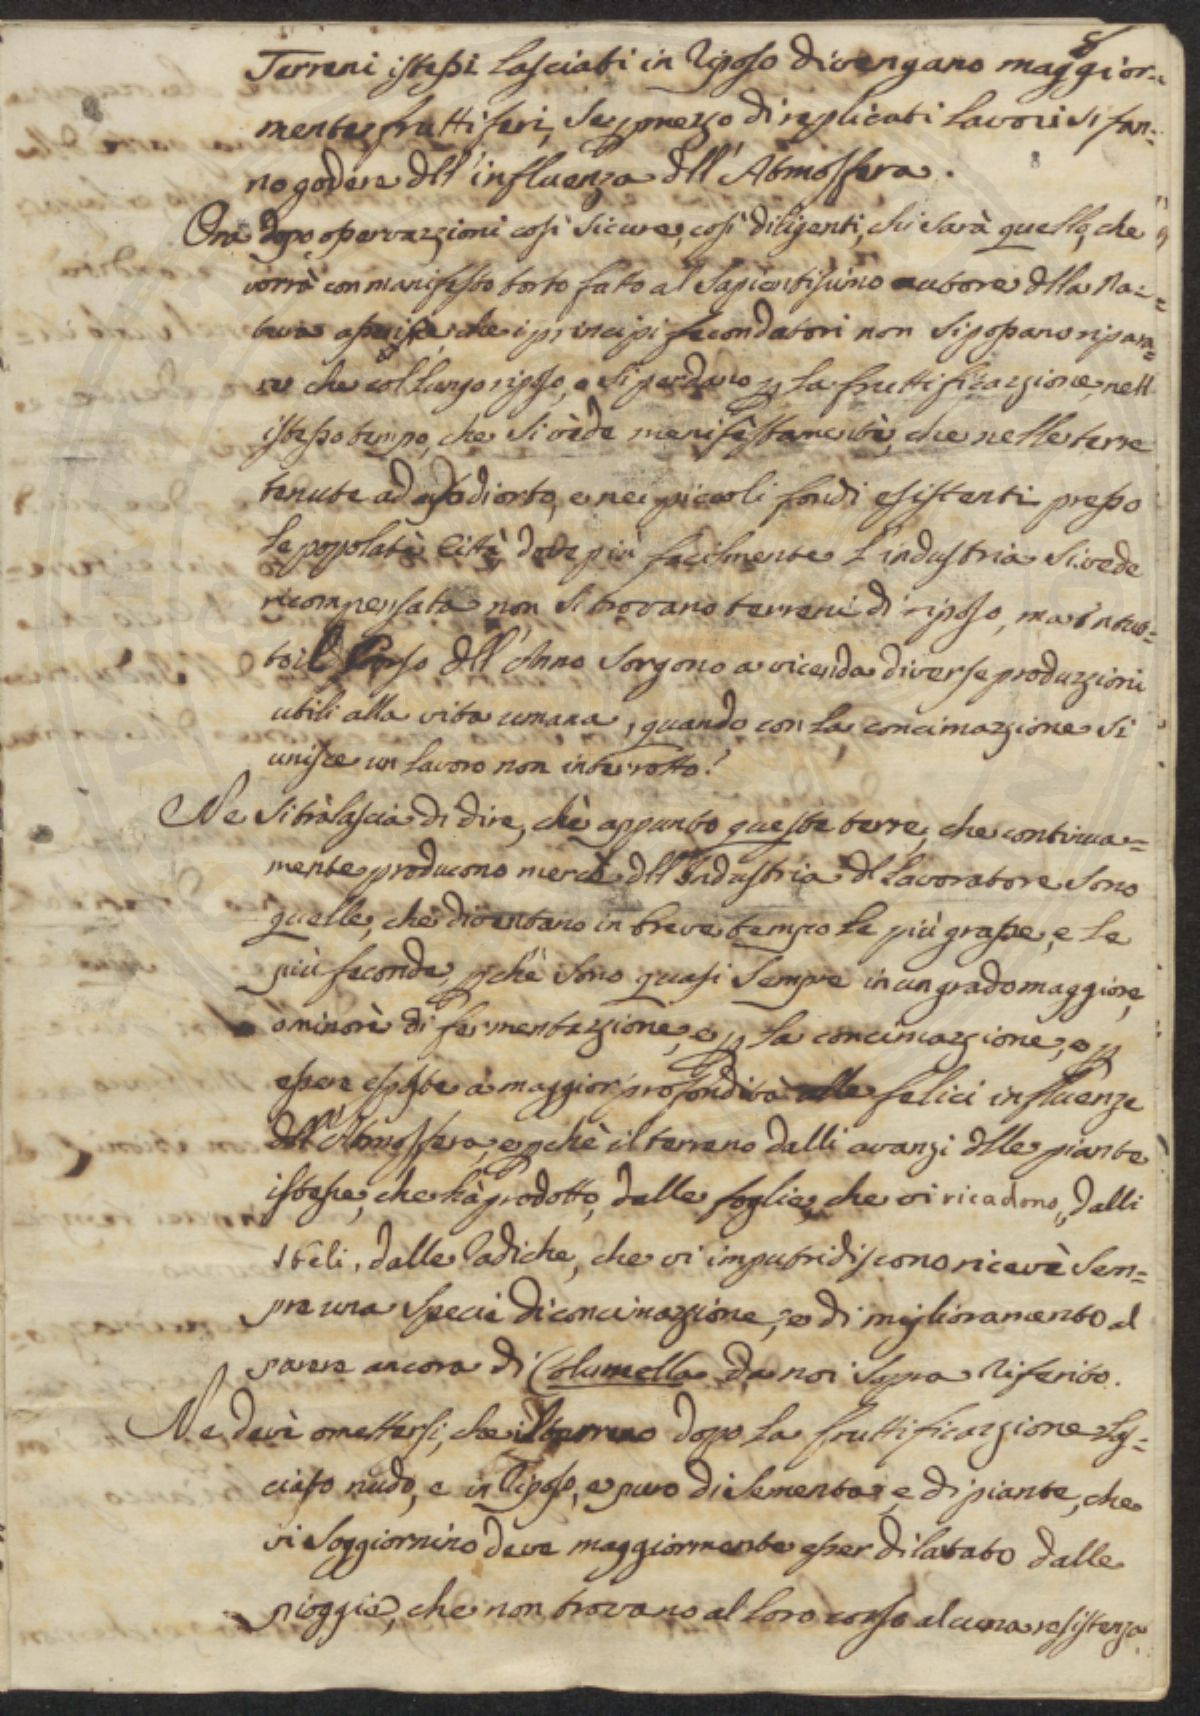 8
Terreni istessi lasciati in Riposo divengano maggior=
mente fruttiferi, se p mezzo di replicati lavori si fan=
no godere dll'influenza dll'Atmosfera.
8
Ora dopo osservazzioni così sicure, così diligenti, chi sarà quello, che
vorrà con manifesto torto fatto al Sapientissimo autore dlla Na=
tura che i principj fecondatori non si possano ripara=
re che col lungo riposo, o si perdano p la fruttificazzione, nell
istesso tempo, che si vède manifèstamentè, che nelle terre
tenute ad uso di orto, e nei piccoli fondi esistenti presso
le popolatè Città dove più facilmente l'industria si vede
ricompensata non si trovano terreni di riposo, ma in tut=
to il Corso dll'Anno sorgono a vicenda diverse produzzioni
utili alla vita umana, quando con la concimazione si
unisce un lavoro non interrotto?
Ne si tràlascia di dire, chè appunto queste terre, che continua=
mente producono mercè dll'Industria dl Lavoratore sono
quelle, chè diventano in breve tempo le più grasse, e le
più feconde, pchè sono quasi sempre in un grado maggiore,
o minorè di fermentazzione, e p la concimazzione, e p
essere esposte à maggior profondità alle felici influenze
dell'Atmosfera, e pchè il terreno dalli avanzi dlle piante
istesse, che hà prodotto, dalle foglie, che vi ricadono, dalli
steli, dalle Radiche, che vi imputridiscono ricevè sem=
pre una specie di concimazzione, e di miglioramento al
parere ancora di Columella da noi sopra riferito.
Ne devè omettersi, che il terreno dopo la fruttificazzione las=
ciato nudo, e in Riposo, e puro di sementa, e di piante, che
vi soggiornino deve maggiormente esser dilatato dalle
pioggie, che non trovano al loro corso alcuna resistenza